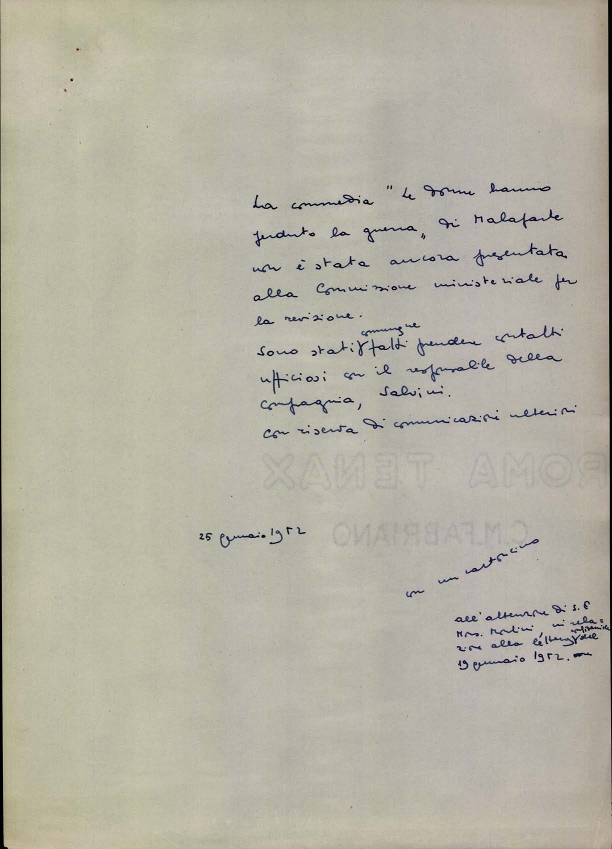 La commedia " Le donne hanno
perduto la guerra „ di Malaparte
non è stata ancora presentata
alla Commissione ministeriale per
la revisione.
comunque
Sono stati fatti prendere contatti
ufficiosi con il responsabile della
compagnia, Salvini.
Con riserva di comunicazioni ulteriori
ROMA TENAX
C.M.FABRIANO
25 gennaio 1952
con un cartoncino
all'attenzione di S. E
Mons. Montini, in rela=
zione alla lettera del
19 gennaio 1952.